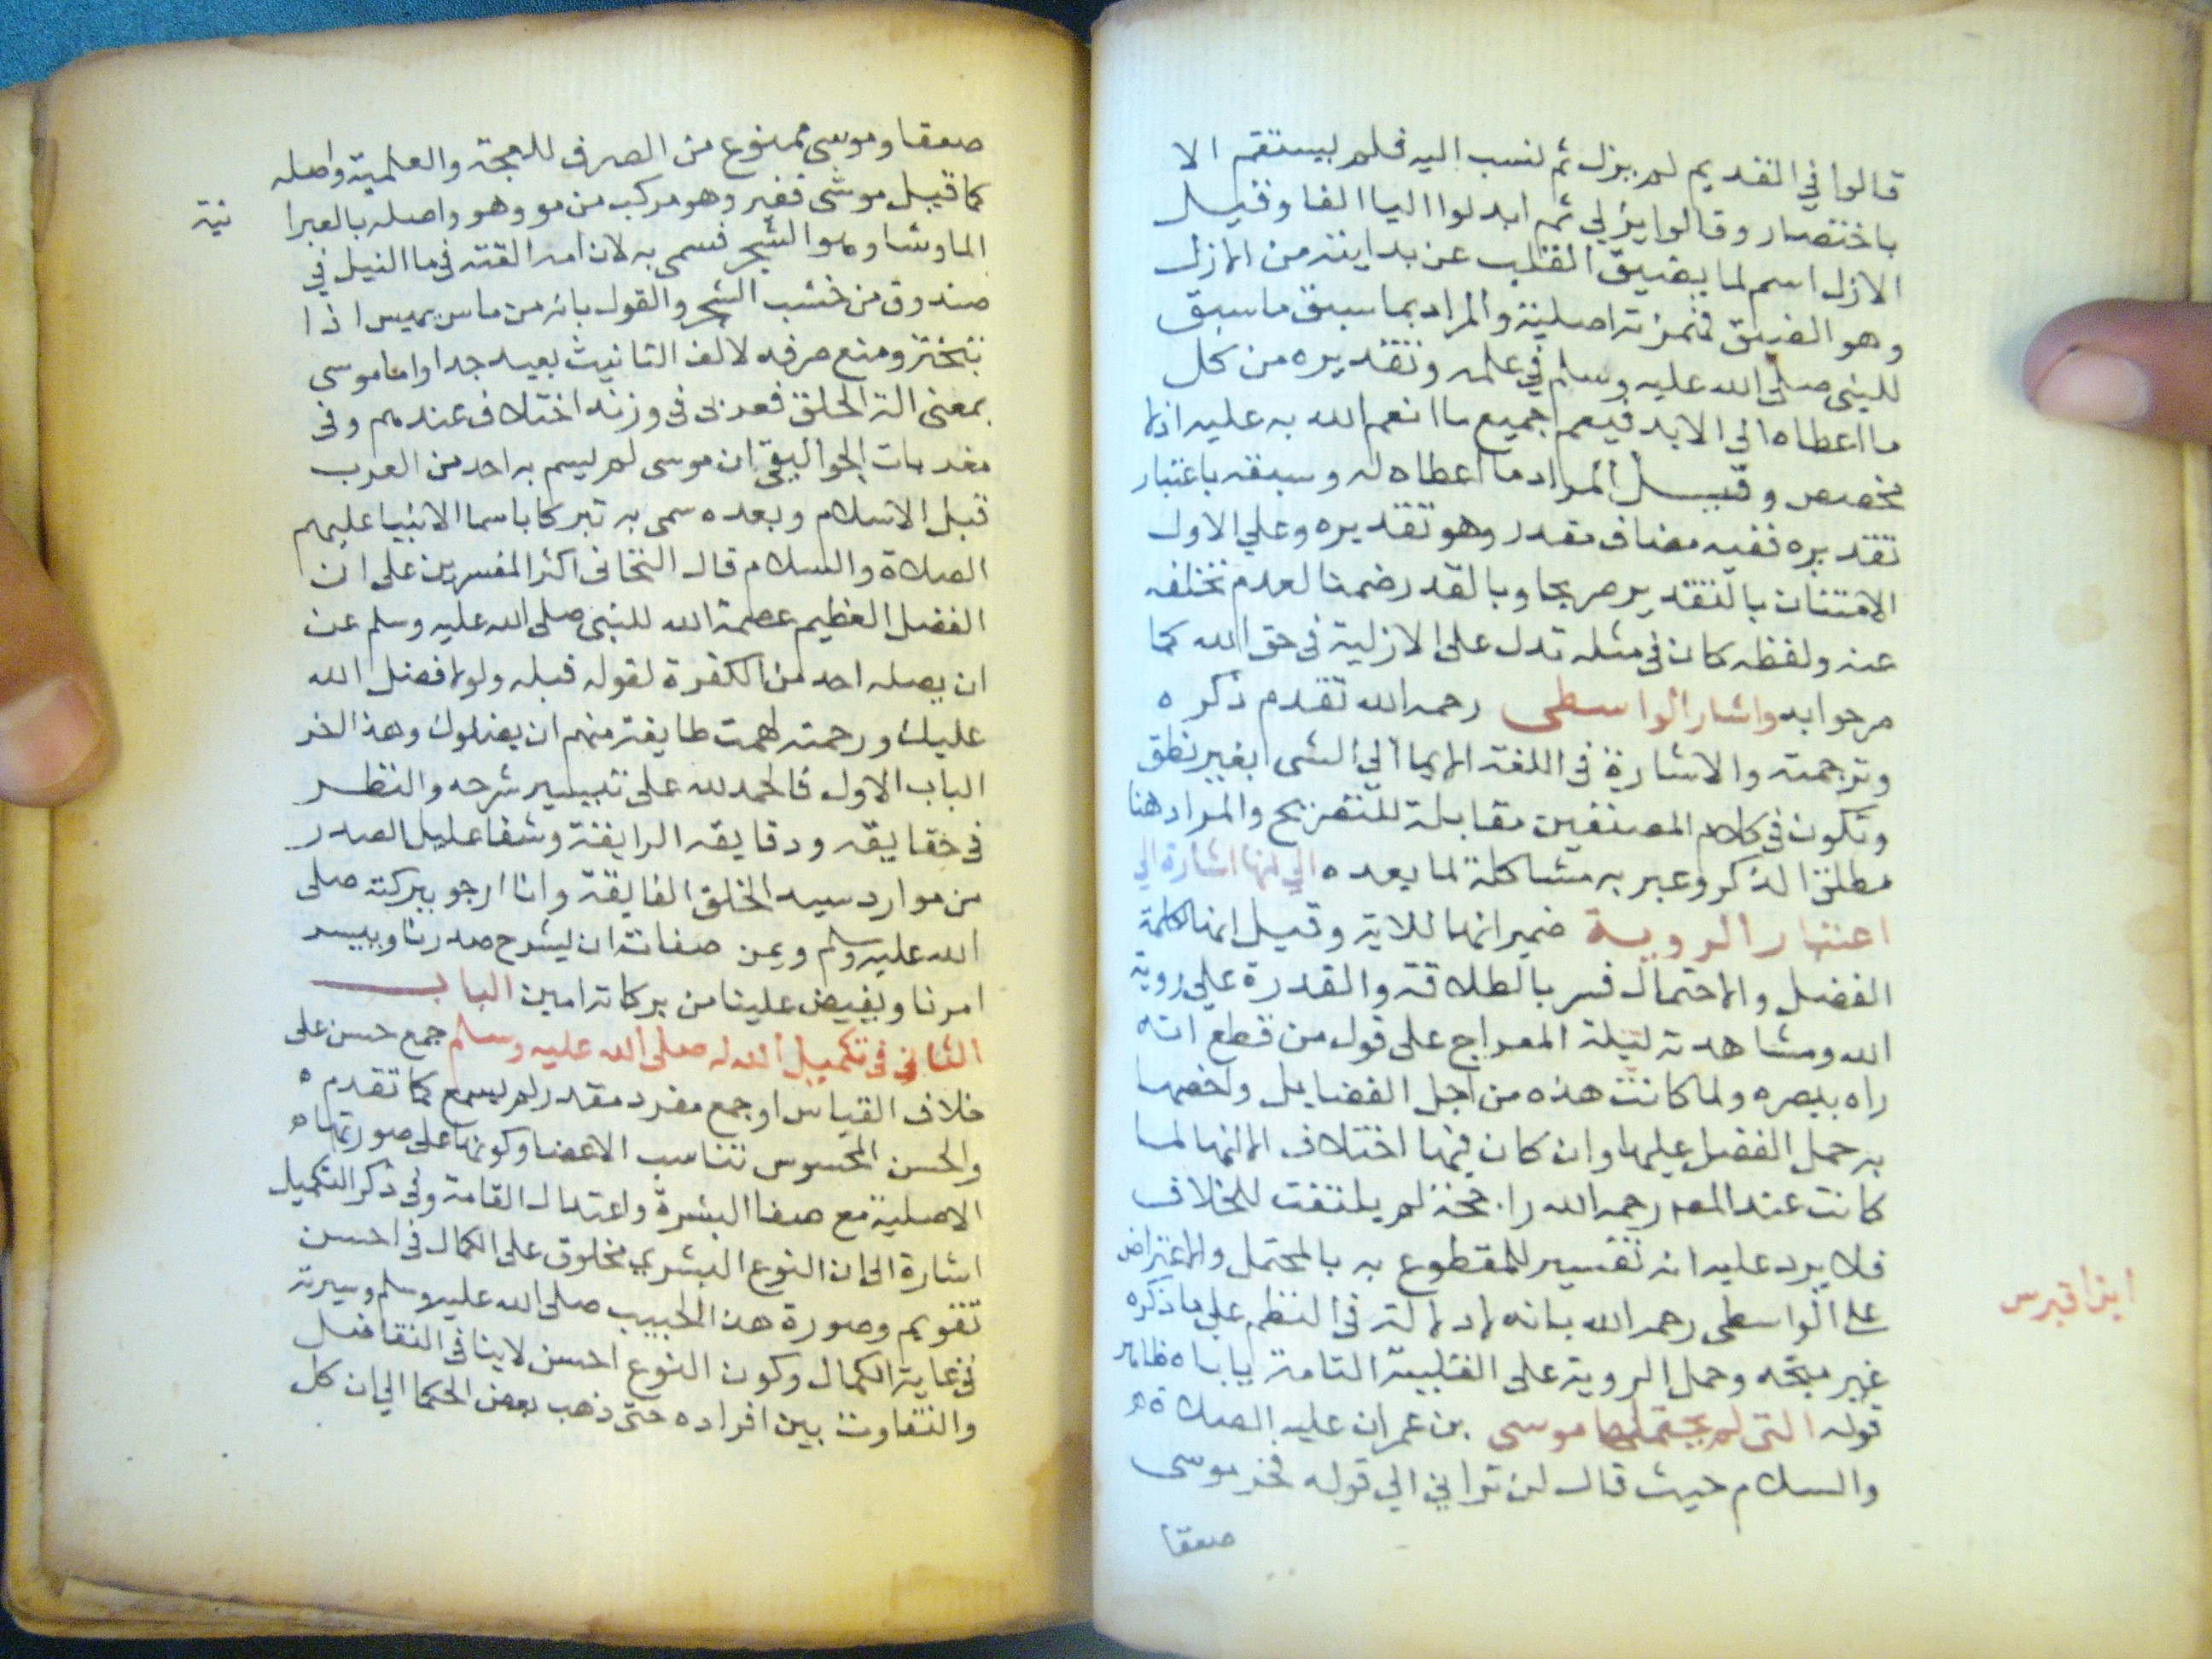 قالوا في القديم لم يزل ثم نسب اليه فلم يستقم الا
باختصار وقالوا يزلي ثم ابدلوا اليا الفا وقيل
الازل اسم لما يضيق القلب عن بدايته من الازل
وهو الضيق فهمزته اصلية والمراد بما سبق ما سبق
للنبي صلى الله عليه وسلم في علمه وتقديره من كل
ما اعطاه الي الابد فيعم جميع ما انعم الله به عليه اذ لا
مخصص وقيل المراد ما اعطاه له وسبقه باعتبار
تقديره ففيه مضاف مقدر وهو تقديره وعلي الاول
الامتنان بالتقدير صريحا وبالقدر ضمنا لعدم تخلفه
عنه ولفظه كان في مثله تدل على الازلية في حق الله كما
صرحوا به واشار الواسطى رحمه الله تقدم ذكره
وترجمته والاشارة في اللغة الايما الي الشى بغير نطق
وتكون في كلام المصنفين مقابلة للتصريح والمراد هنا
مطلق الذكر وعبر به مشاكلة لما بعده الي انها اشارة الي
احتمال الروية ضمير انها للاية وقيل انها لكلمة
الفضل والاحتمال فسر بالطلاقة والقدرة علي روية
الله ومشاهدته ليلة المعراج على قول من قطع انه
راه ببصره ولما كانت هذه من اجل الفضايل واخصها
به حمل الفضل عليها وان كان فيها اختلاف الا انها لما
كانت عند المص رحمه الله راجحة لم يلتفت للخلاف
فلا يرد عليه انه تفسير للمقطوع به بالمحتمل والاعتراض
علي الواسطى رحمه الله بانه لا دلالة في النظم علي ما ذكره
غير متجه وحمل الروية على القلبية التامة ياباه ظاهر
قوله التى لم يحتملها موسى بن عمران عليه الصلاة
والسلام حيث قال لن تراني الي قوله فخر موسى
صعقا
ابن اقبرس
صعقا وموسى ممنوع من الصرف للعجمة والعلمية واصله
كما قيل موشى فغير وهو مركب من مو وهو واصله بالعبرا
نية
الما وشا وهو الشجر فسمى به لان امه القته في ما النيل في
صندوق من خشب الشجر والقول بانه من ماس يميس اذا
تبختر ومنع صرفه لالف التانيث بعيد جدا واما موسى
بمعنى الة الحلق فعربى في وزنه اختلاف عندهم وفى
معربات الجواليقى ان موسى لم يسم به احد من العرب
قبل الاسلام وبعده سمى به تبركا باسما الانبيا عليهم
الصلاة والسلام قال التجانى اكثر المفسرين على ان
الفضل العظيم عصمة الله للنبى صلى الله عليه وسلم عن
ان يصله احد من الكفرة لقوله قبله ولولا فضل الله
عليك ورحمته لهمت طايفة منهم ان يضلوك وهذا اخر
الباب الاول فالحمد لله على تيسير شرحه والنظر
في حقايقه ودقايقه الرايقة وشفا عليل الصدر
من موارد سيد الخلق الفايقة وانا ارجو ببركته صلى
الله عليه وسلم ويمن صفاته ان يشرح صدرنا وييسر
امرنا ويفيض علينا من بركاته امين الباب
الثاني في تكميل الله له صلى الله عليه وسلم جمع حسن على
خلاف القياس او جمع مفرد مقدر لم يسمع كما تقدم
والحسن المحسوس تناسب الاعضا وكونها على صورتها
الاصلية مع صفا البشرة واعتدال القامة وفي ذكر التكميل
اشارة الى ان النوع البشري مخلوق على الكمال في احسن
تقويم وصورة هذا الحبيب صلى الله عليه وسلم وسيرته
في غاية الكمال وكون النوع احسن لا ينافى التفاضل
والتفاوت بين افراده حتى ذهب بعض الحكما الي ان كل